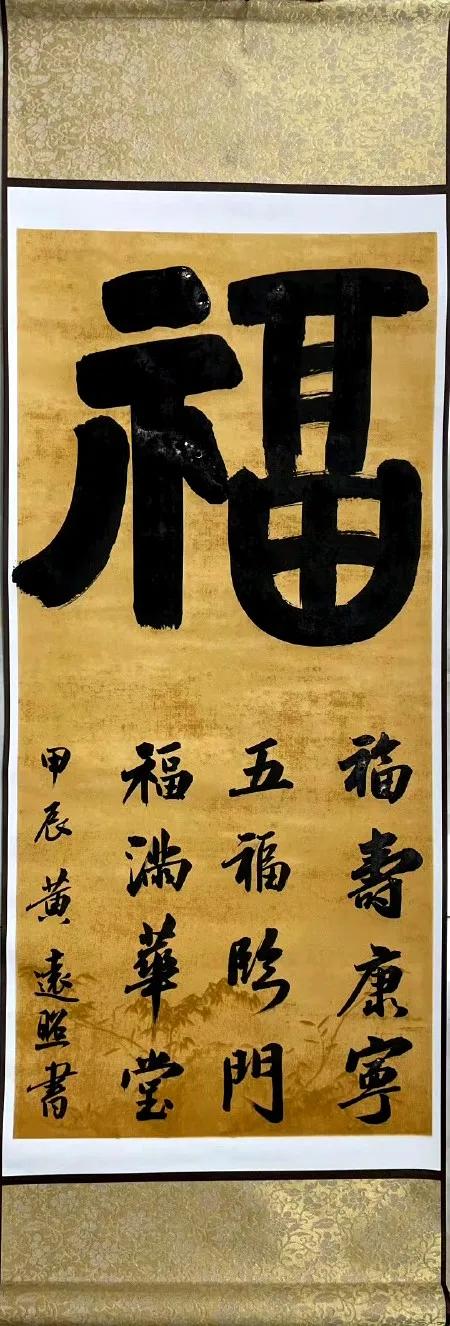 福
福壽康寧
五福臨門
福滿華堂
甲辰 黄遠照書